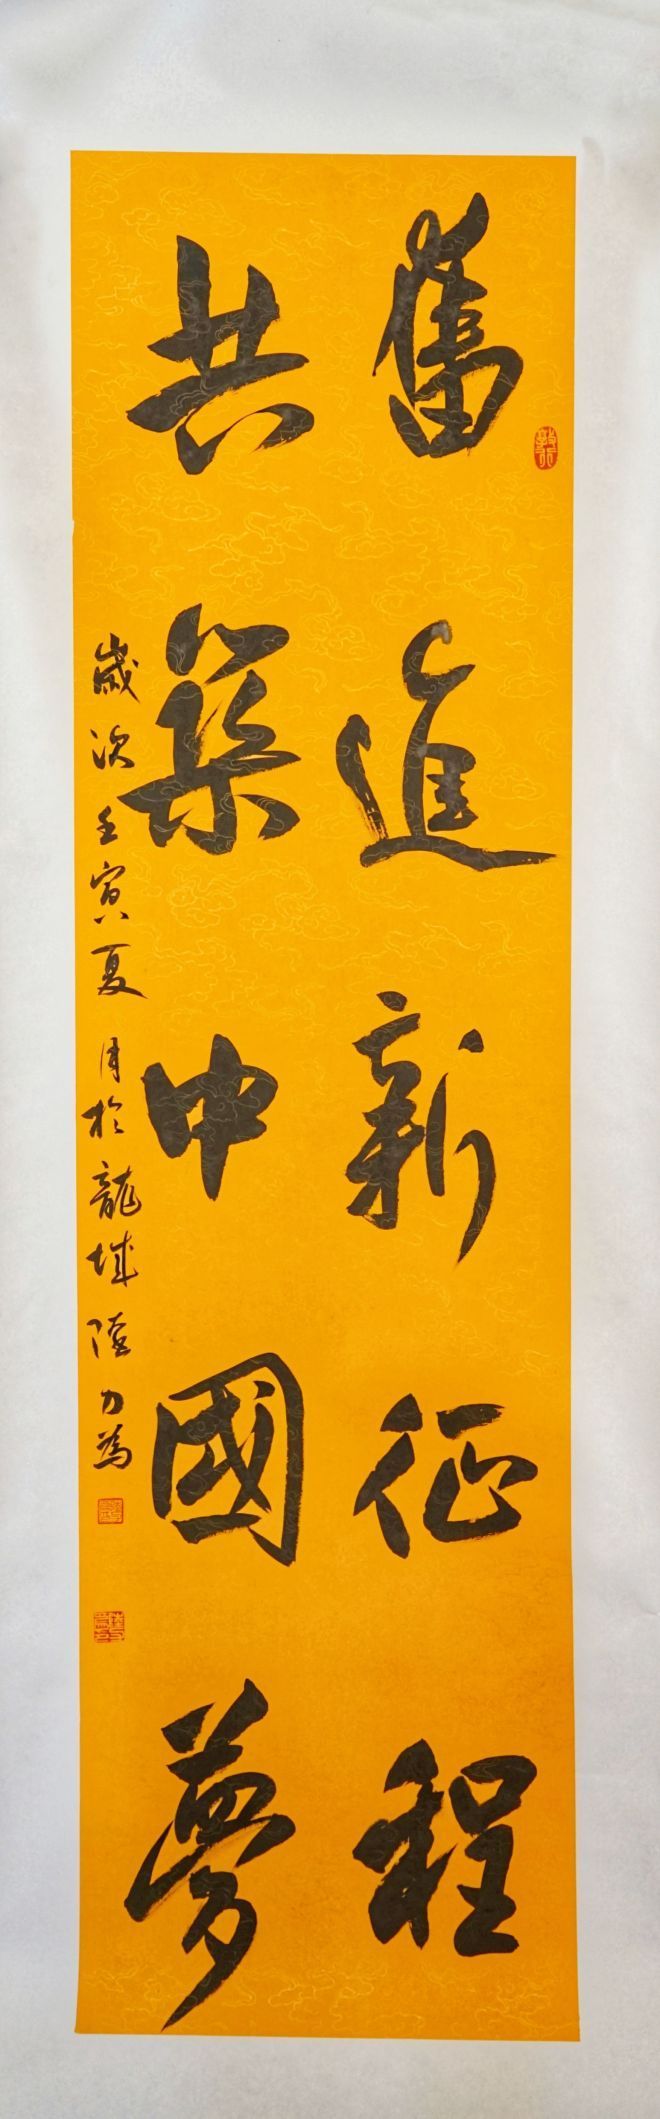 奮進新征程
共築中國夢
歲次壬寅夏月於龍城陸力為
敦行